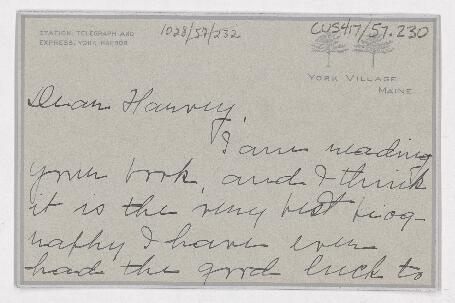 STATION, TELEGRAPH AND
EXPRESS, YORK HARBOR
1028/57/232
CUS417/57.230
YORK VILLAGE
MAINE
Dear Harvey,
I am reading
your book, and I think
it is the very best biog-
raphy I have ever
had the good luck to